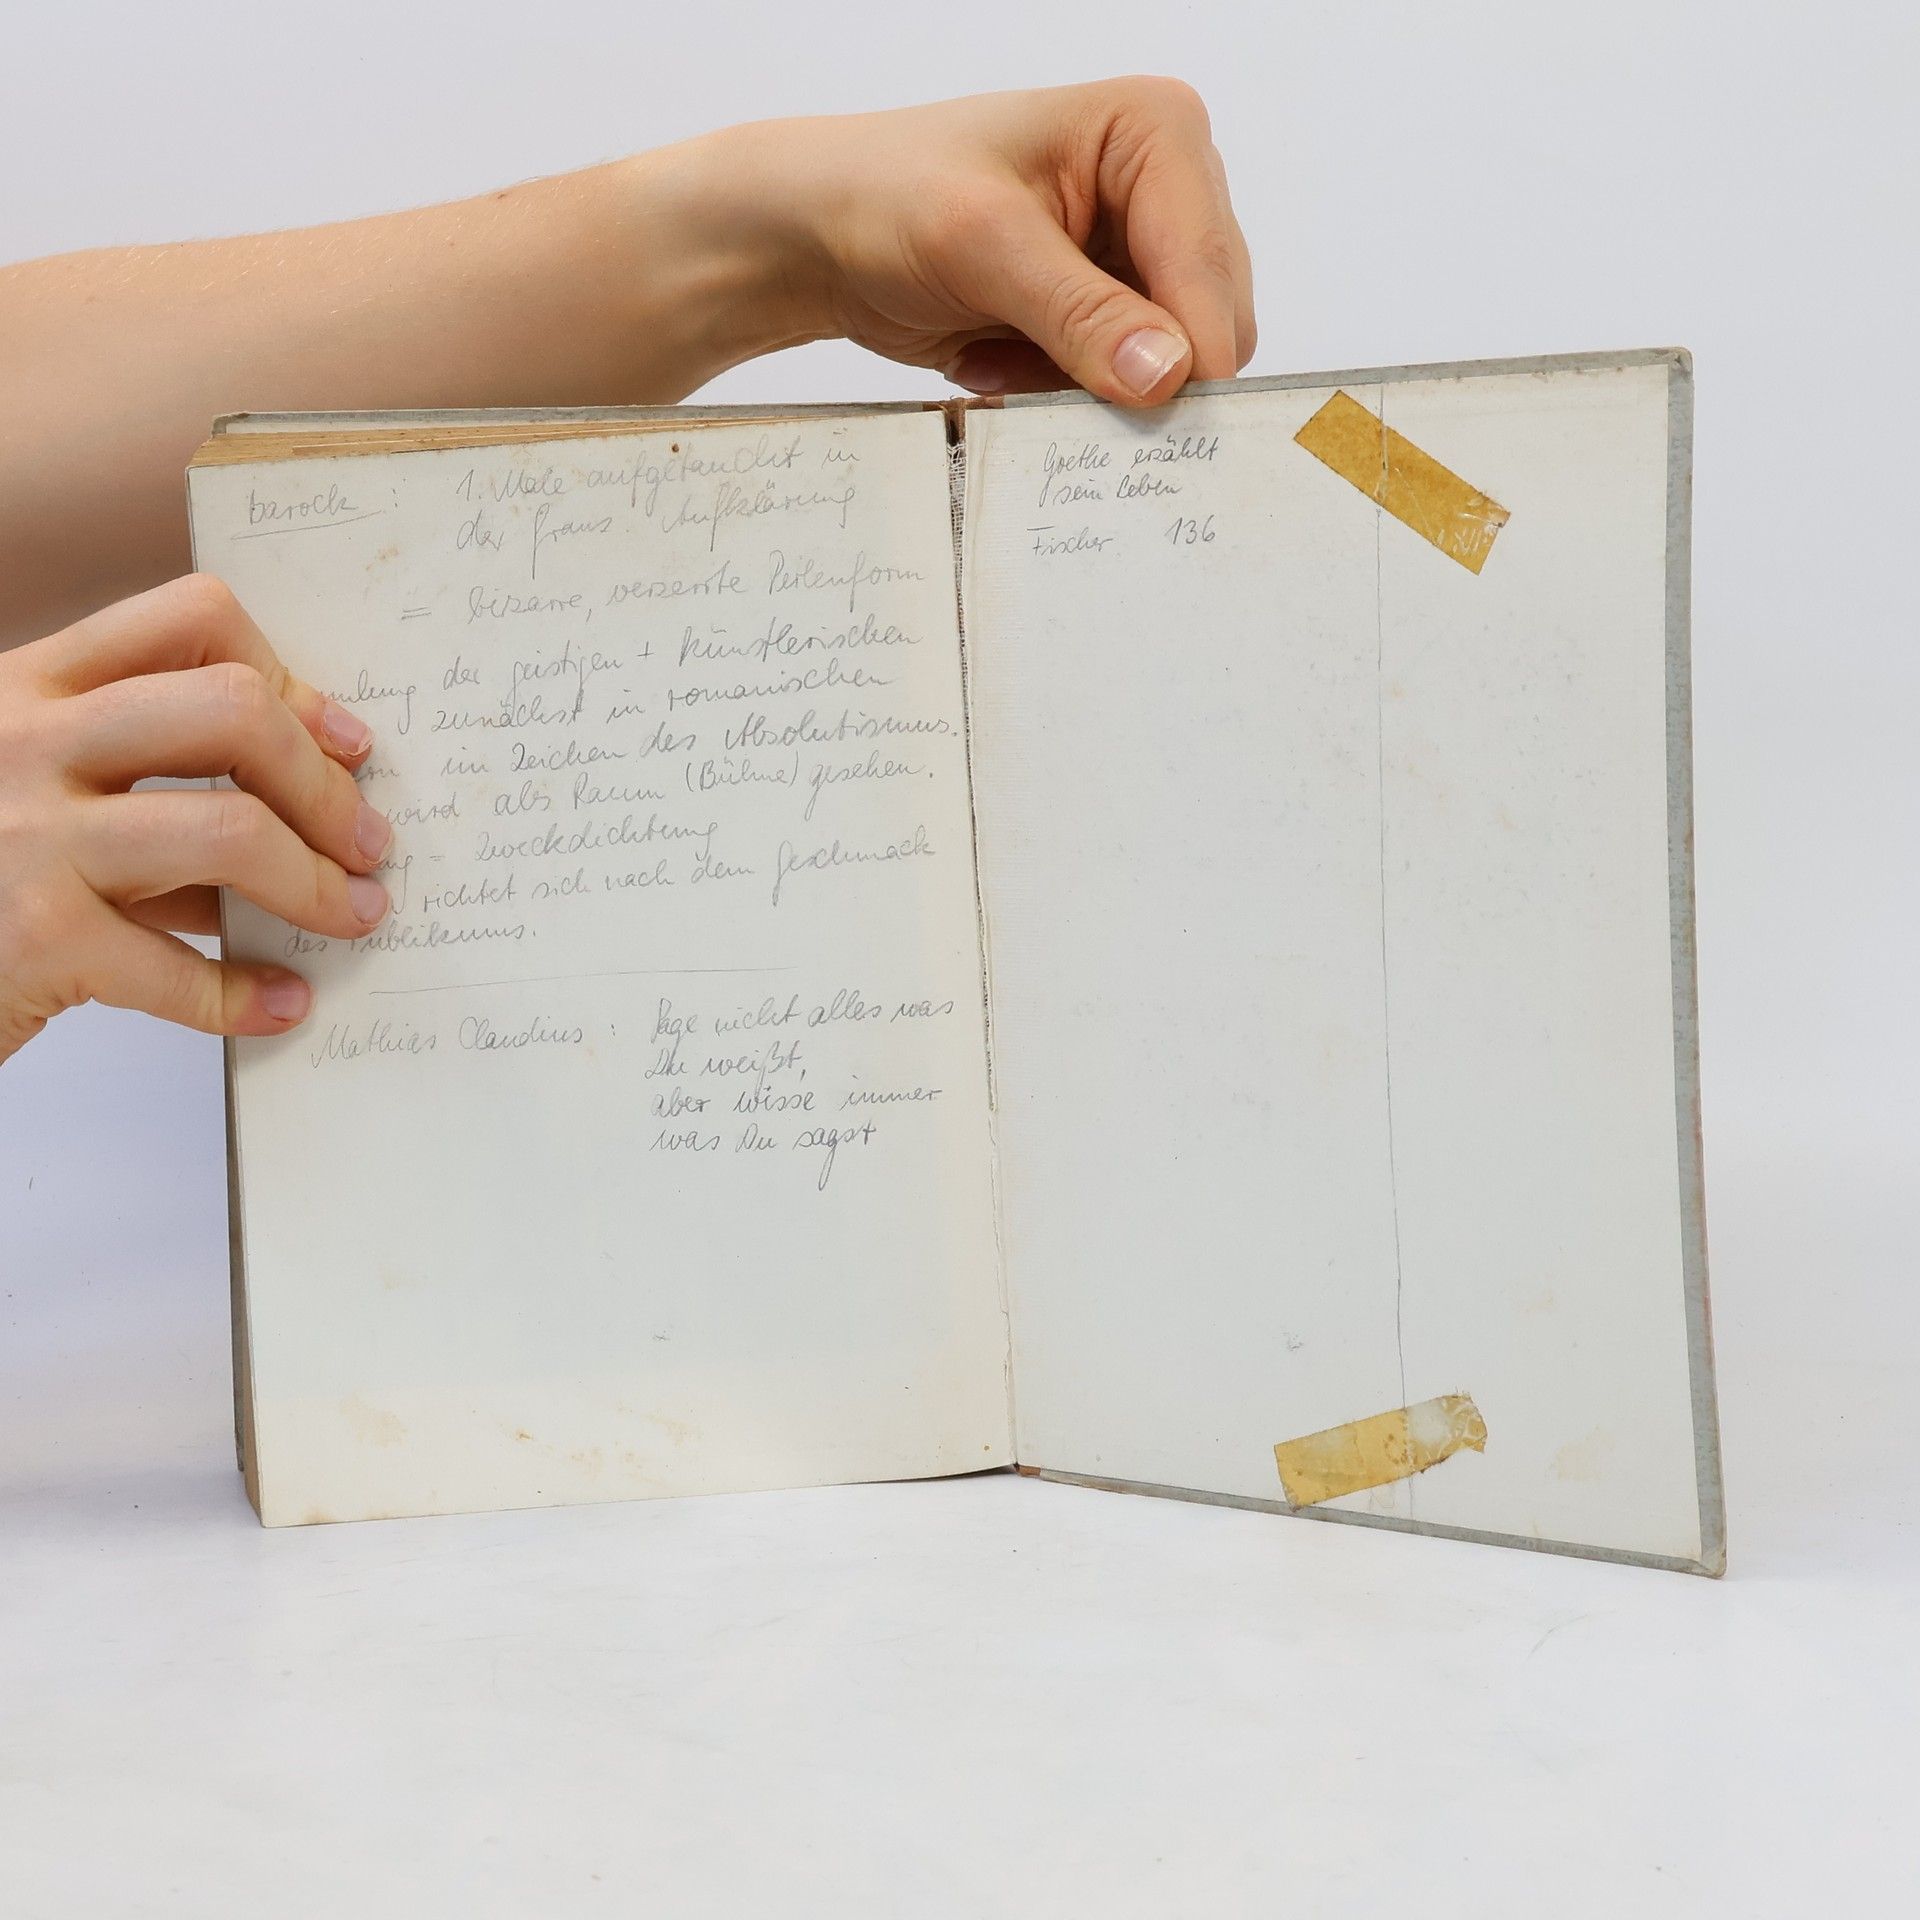 barock : 1. Male aufgetaucht in
der franz. Aufklärung
= bizarre, verzerrte Perlenform
mlung der geistigen + künstlerischen
zunächst in romanischen
im Zeichen des Absolutismus.
wird als Raum (Bühne) gesehen.
ng = Zweckdichtung
richtet sich nach dem Geschmack
des Publikums.
Mathias Claudius : Sage nicht alles was
Du weißt,
aber wisse immer
was Du sagst
Goethe erzählt
sein Leben
Fischer 136